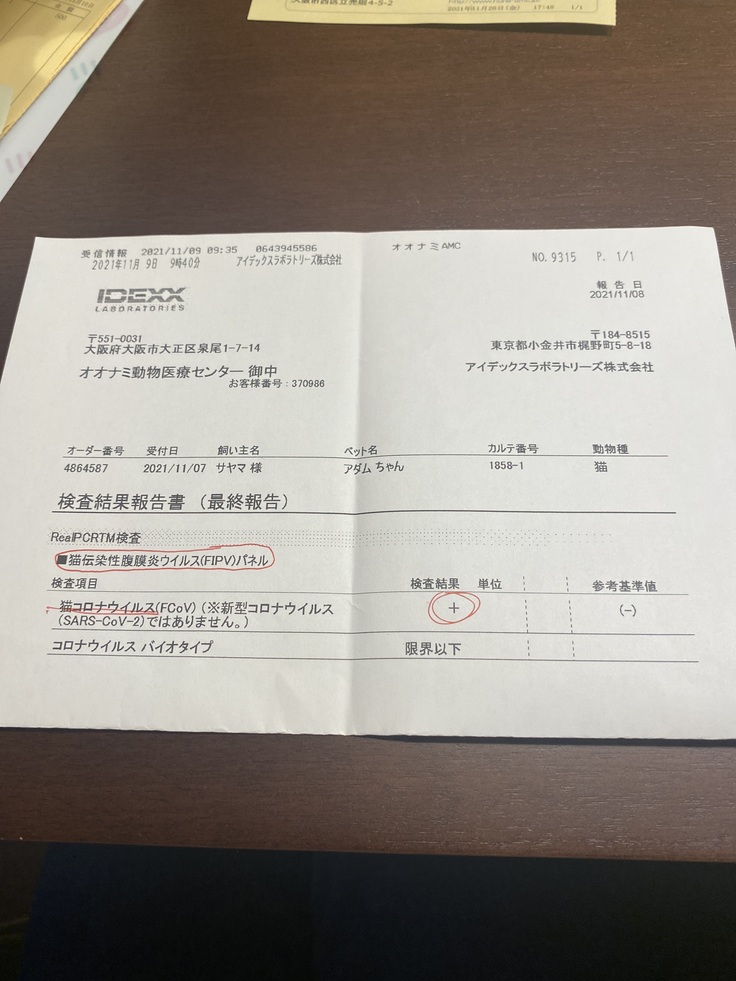 大阪市西区立売堀4-5-2
2021年11月26日(金) 17:48 1/1
500
受信情報 2021/11/09 09:35 0643945586 オオナミAMC
2021年11月 9日 9時40分 アイデックスラボラトリーズ株式会社 NO.9315 P. 1/1
報告日
2021/11/08
IDEXX
LABORATORIES
〒551-0031
大阪府大阪市大正区泉尾1-7-14
オオナミ動物医療センター 御中
お客様番号:370986
〒184-8515
東京都小金井市梶野町5-8-18
アイデックスラボラトリーズ株式会社
オーダー番号 受付日 飼い主名 ペット名 カルテ番号 動物種
4864587 2021/11/07 サヤマ 様 アダム ちゃん 1858-1 猫
検査結果報告書 (最終報告)
RealPCRTM検査
■猫伝染性腹膜炎ウイルス(FIPV)パネル
検査項目 検査結果 単位 参考基準値
猫コロナウイルス(FCoV) (※新型コロナウイルス + (-)
(SARS-CoV-2)ではありません。)
コロナウイルス バイオタイプ 限界以下